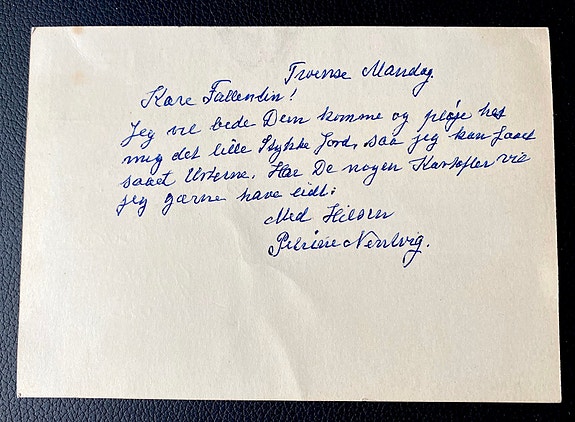 Troense Mandag.
Kære Fallentin!
Jeg vil bede Dem komme og pløje hos
mig det lille Stykke Jord, saa jeg kan faaet
saaet Urterne. Har De nogen Kartofler vil
jeg gærne have lidt.
Med Hilsen
Petrine